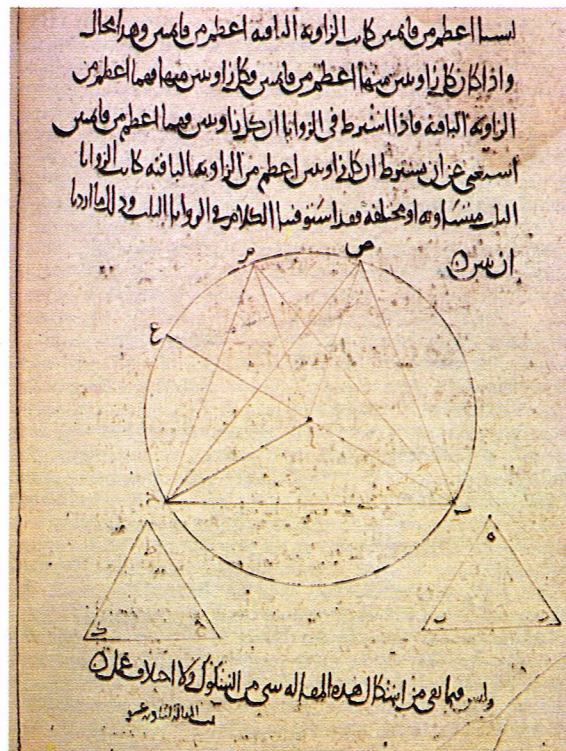 اعظم من قائمتين كانت الزاويه الباقيه اعظم من قائمتين وهذا محال
واذا كان كل زاويتين منها اعظم من قائمتين وكل زاويتين منها فهما اعظم من
الزاويه الباقيه فاذا اشترط في الزوايا ان كل زاويتين فهما اعظم من قائمتين
استغنى عن ان يشترط ان كل زاويتين اعظم من الزاويه الباقيه كانت الزوايا
الثلث متساويه او مختلفه فقد استوفينا الكلام في الزوايا الثلث وذلك ما اردنا
ان نبين
ص
ع
ا
ب
ه
ط
ك
وليس فيما بقي من اشكال هذه المقاله شي من الشكوك ولا اختلاف عمل
المقالة عشر